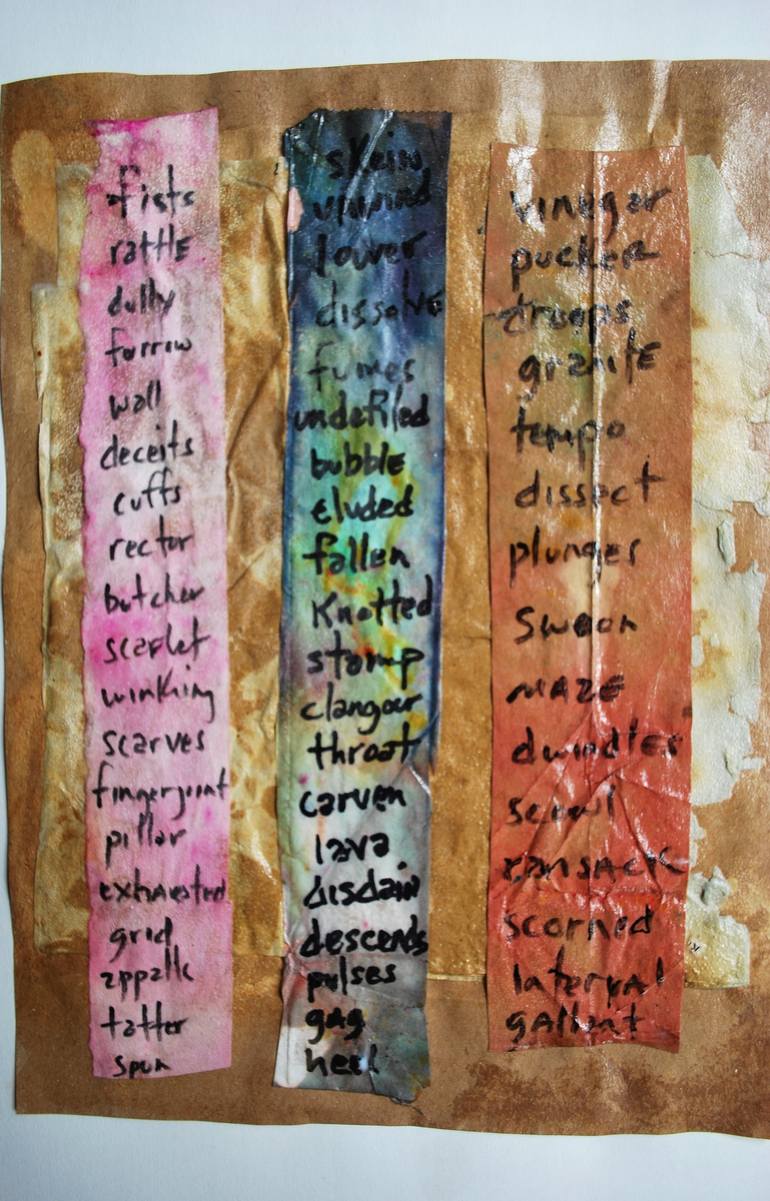 fists
rattle
dully
furrow
wall
deceits
cuffs
rector
butcher
scarlet
winking
scarves
fingerprint
pillar
exhausted
grid
appalls
tatter
spun
skein
unwind
lower
dissolve
fumes
undefiled
bubble
eluded
fallen
Knotted
stamp
clangour
throat
carven
lava
disdain
descends
pulses
gag
heel
vinegar
pucker
troops
granite
tempo
dissect
plunges
swoon
MAZE
dwindles
scowl
ransack
scorned
gallant